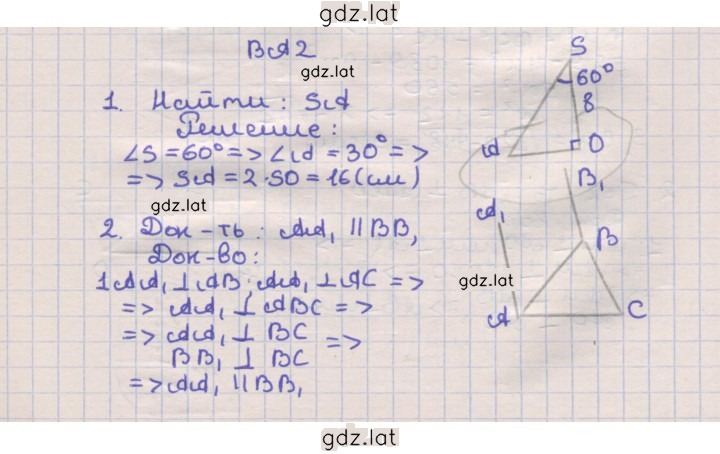 gdz.lat
В-А2
gdz.lat
1. Найти: SA
Решение:
∠S = 60° => ∠A = 30° =>
=> SA = 2·SO = 16 (см)
gdz.lat
2. Док-ть: AA₁ || BB₁
Док-во:
1 AA₁ ⊥ AB; AA₁ ⊥ AC =>
=> AA₁ ⊥ ABC =>
=> AA₁ ⊥ BC
BB₁ ⊥ BC =>
=> AA₁ || BB₁
S
60°
8
A
O
B₁
A₁
B
gdz.lat
A
C
gdz.lat